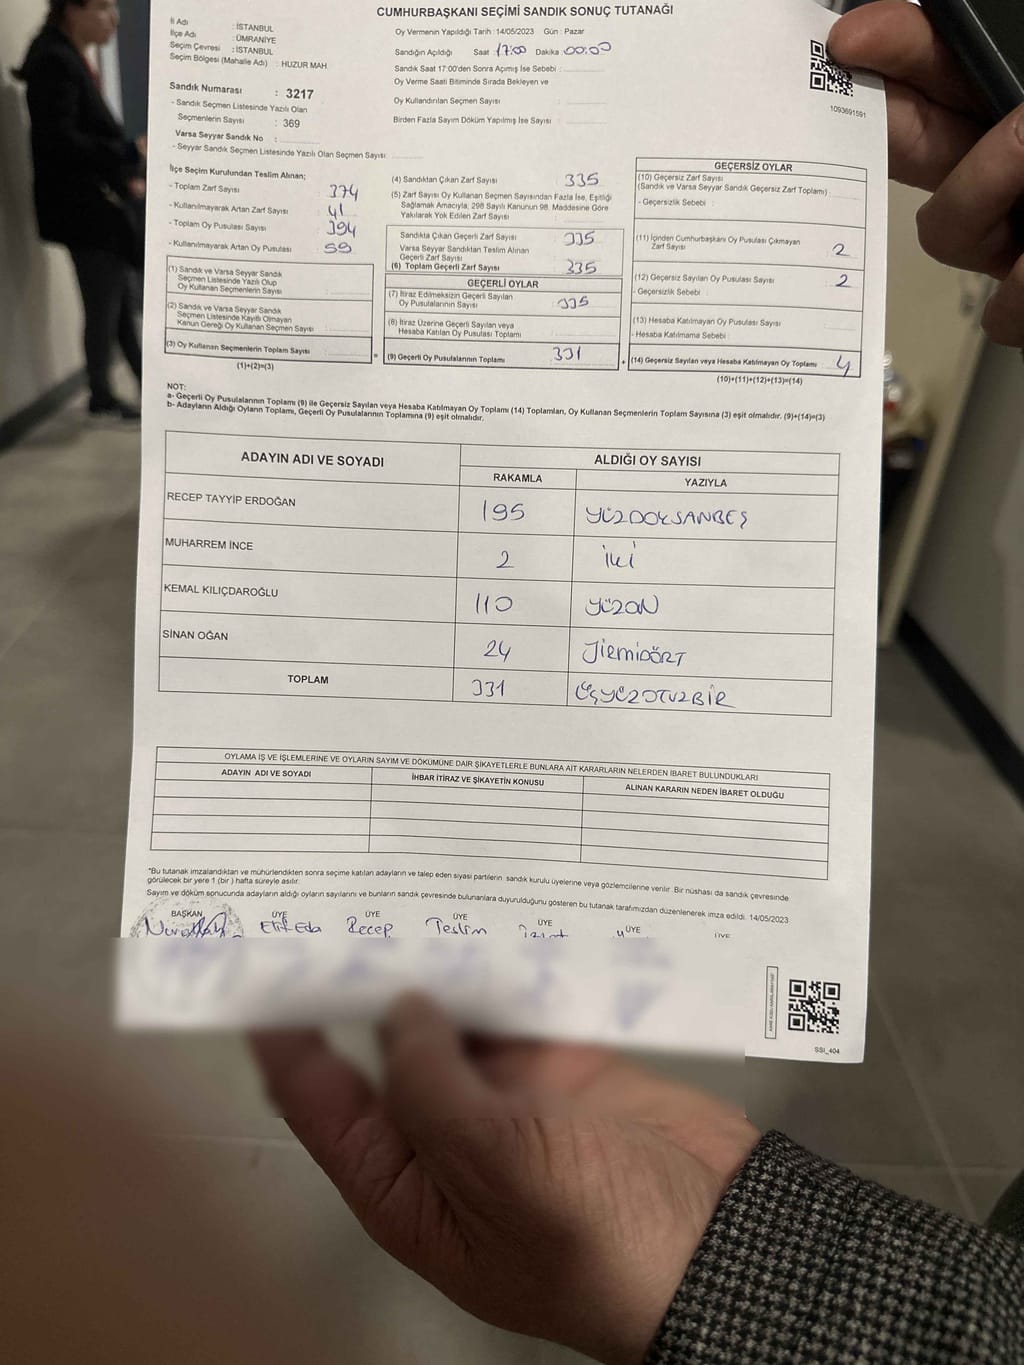 CUMHURBAŞKANI SEÇİMİ SANDIK SONUÇ TUTANAĞI
İl Adı : İSTANBUL
İlçe Adı : ÜMRANİYE
Seçim Çevresi : İSTANBUL
Seçim Bölgesi (Mahalle Adı) : HUZUR MAH.
Sandık Numarası : 3217
- Sandık Seçmen Listesinde Yazılı Olan
Seçmenlerin Sayısı : 369
Varsa Seyyar Sandık No :
- Seyyar Sandık Seçmen Listesinde Yazılı Olan Seçmen Sayısı:
Oy Vermenin Yapıldığı Tarih :14/05/2023 Gün : Pazar
Sandığın Açıldığı Saat :17:00 Dakika :00:00
Sandık Saat 17:00'den Sonra Açılmış İse Sebebi :
Oy Verme Saati Bitiminde Sırada Bekleyen ve
Oy Kullandırılan Seçmen Sayısı :
Birden Fazla Sayım Döküm Yapılmış İse Sayısı :
1093691591
İlçe Seçim Kurulundan Teslim Alınan;
- Toplam Zarf Sayısı : 374
- Kullanılmayarak Artan Zarf Sayısı : 41
- Toplam Oy Pusulası Sayısı : 394
- Kullanılmayarak Artan Oy Pusulası : 59
(1) Sandık ve Varsa Seyyar Sandık
Seçmen Listesinde Yazılı Olup
Oy Kullanan Seçmenlerin Sayısı :
(2) Sandık ve Varsa Seyyar Sandık
Seçmen Listesinde Kayıtlı Olmayan
Kanun Gereği Oy Kullanan Seçmen Sayısı :
(3) Oy Kullanan Seçmenlerin Toplam Sayısı :
(1)+(2)=(3)
(4) Sandıktan Çıkan Zarf Sayısı : 335
(5) Zarf Sayısı Oy Kullanan Seçmen Sayısından Fazla İse, Eşitliği
Sağlamak Amacıyla, 298 Sayılı Kanunun 98. Maddesine Göre
Yakılarak Yok Edilen Zarf Sayısı :
Sandıkta Çıkan Geçerli Zarf Sayısı : 335
Varsa Seyyar Sandıktan Teslim Alınan
Geçerli Zarf Sayısı :
(6) Toplam Geçerli Zarf Sayısı : 335
GEÇERLİ OYLAR
(7) İtiraz Edilmeksizin Geçerli Sayılan
Oy Pusulalarının Sayısı : 335
(8) İtiraz Üzerine Geçerli Sayılan veya
Hesaba Katılan Oy Pusulası Toplamı :
= (9) Geçerli Oy Pusulalarının Toplamı : 331
GEÇERSİZ OYLAR
(10) Geçersiz Zarf Sayısı
(Sandık ve Varsa Seyyar Sandık Geçersiz Zarf Toplamı) :
- Geçersizlik Sebebi :
(11) İçinden Cumhurbaşkanı Oy Pusulası Çıkmayan
Zarf Sayısı : 2
(12) Geçersiz Sayılan Oy Pusulası Sayısı : 2
- Geçersizlik Sebebi :
(13) Hesaba Katılmayan Oy Pusulası Sayısı :
- Hesaba Katılmama Sebebi :
+ (14) Geçersiz Sayılan veya Hesaba Katılmayan Oy Toplamı : 4
(10)+(11)+(12)+(13)=(14)
NOT:
a- Geçerli Oy Pusulalarının Toplamı (9) ile Geçersiz Sayılan veya Hesaba Katılmayan Oy Toplamı (14) Toplamları, Oy Kullanan Seçmenlerin Toplam Sayısına (3) eşit olmalıdır. (9)+(14)=(3)
b- Adayların Aldığı Oyların Toplamı, Geçerli Oy Pusulalarının Toplamına (9) eşit olmalıdır.
ADAYIN ADI VE SOYADI ALDIĞI OY SAYISI
RAKAMLA YAZIYLA
RECEP TAYYİP ERDOĞAN 195 YÜZDOKSANBEŞ
MUHARREM İNCE 2 iki
KEMAL KILIÇDAROĞLU 110 YÜZON
SİNAN OĞAN 24 YirmiDÖRT
TOPLAM 331 ÜÇYÜZOTUZBİR
OYLAMA İŞ VE İŞLEMLERİNE VE OYLARIN SAYIM VE DÖKÜMÜNE DAİR ŞİKAYETLERLE BUNLARA AİT KARARLARIN NELERDEN İBARET BULUNDUKLARI
ADAYIN ADI VE SOYADI İHBAR İTİRAZ VE ŞİKAYETİN KONUSU ALINAN KARARIN NEDEN İBARET OLDUĞU
*Bu tutanak imzalandıktan ve mühürlendikten sonra seçime katılan adayların ve talep eden siyasi partilerin sandık kurulu üyelerine veya gözlemcilerine verilir. Bir nüshası da sandık çevresinde
görülecek bir yere 1 (bir ) hafta süreyle asılır.
Sayım ve döküm sonucunda adayların aldığı oyların sayılarını ve bunların sandık çevresinde bulunanlara duyurulduğunu gösteren bu tutanak tarafımızdan düzenlenerek imza edildi. 14/05/2023
BAŞKAN ÜYE ÜYE ÜYE ÜYE ÜYE ÜYE
Elif Eda Recep Teslim
SSI_404